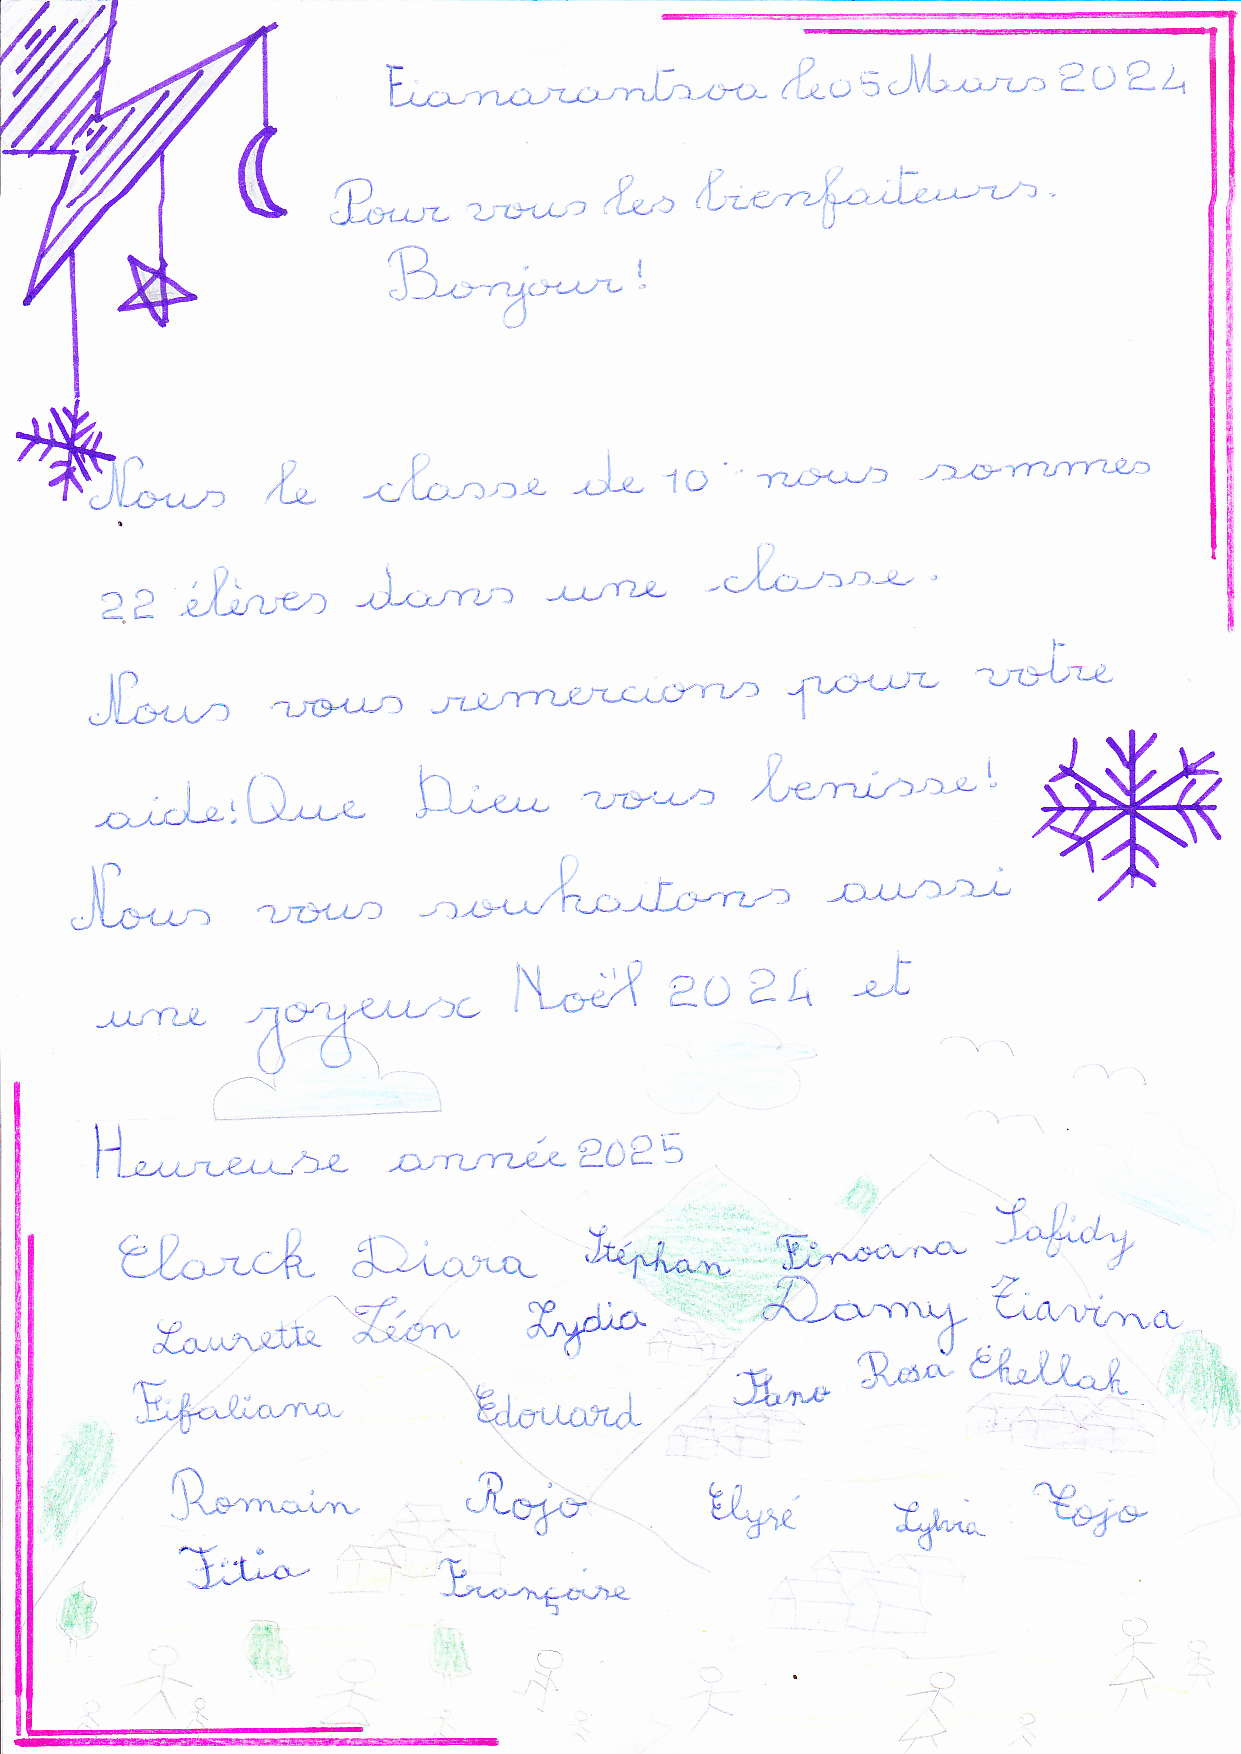 Fianarantsoa le 05 Mars 2024
Pour vous les bienfaiteurs.
Bonjour!
Nous le classe de 10 nous sommes
22 élèves dans une classe.
Nous vous remercions pour votre
aide! Que Dieu vous benisse!
Nous vous souhaitons aussi
une joyeux Noël 2024 et
Heureuse année 2025
Elarck Diara Stéphan Finoana Safidy
Laurette Léon Lydia Damy Tiavina
Fifaliana Edouard Rosa
Romain Rojo Elysé Sylvia Tojo
Fitia Françoise